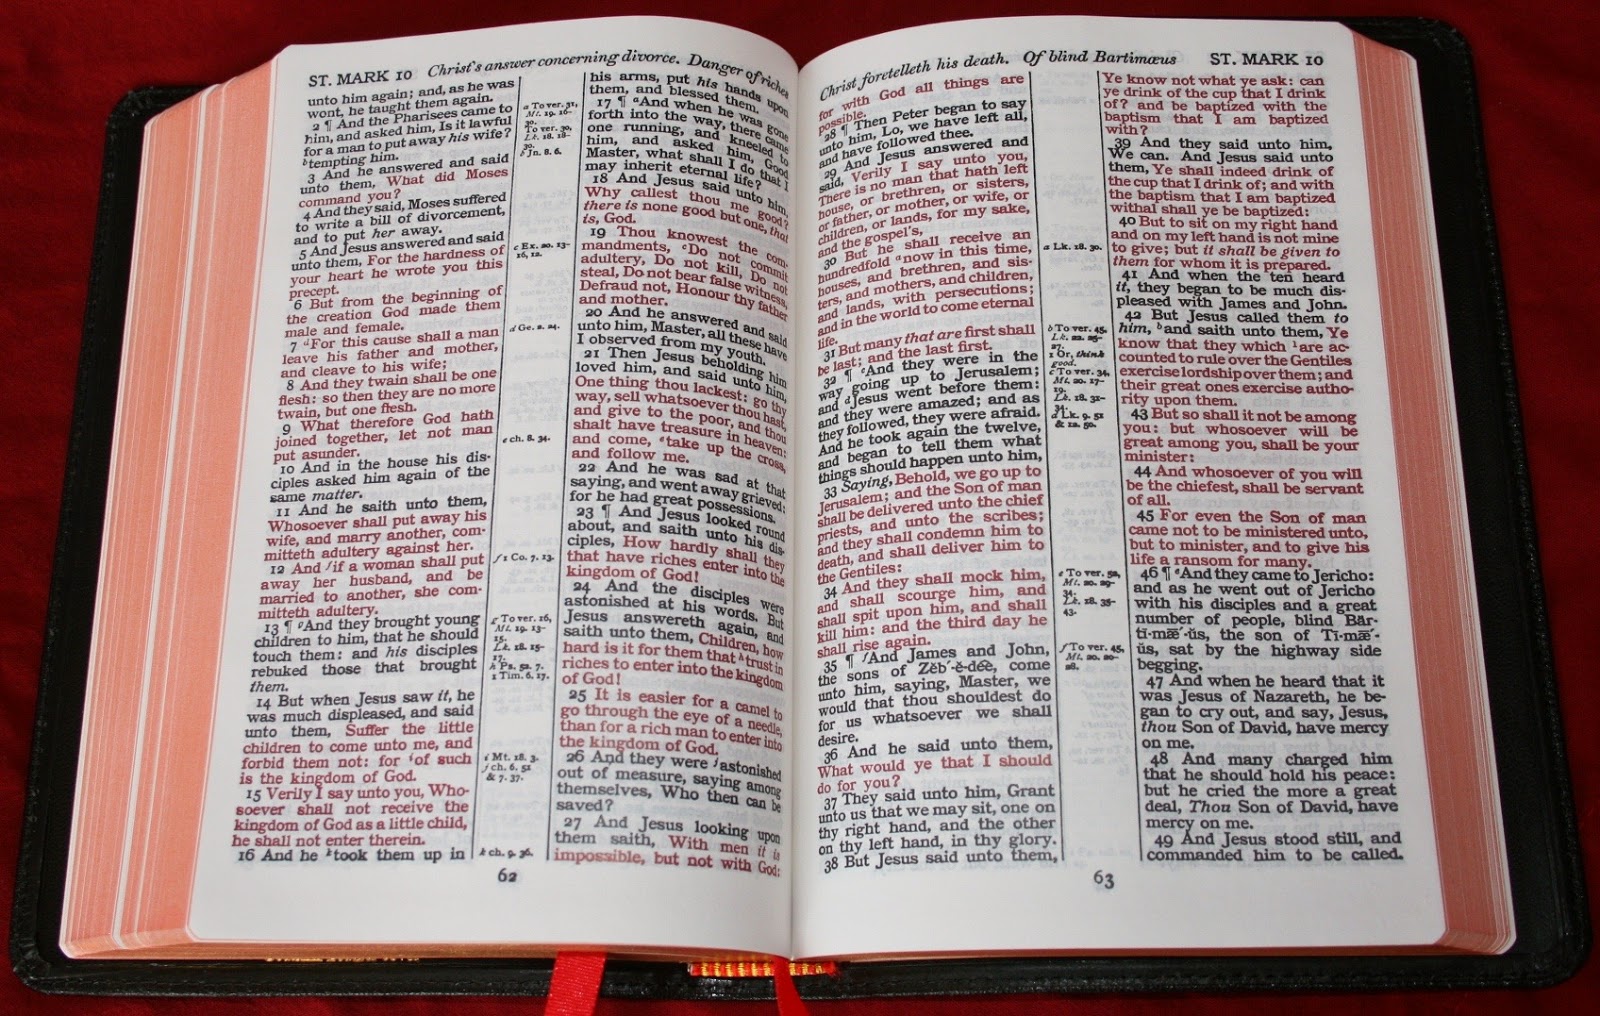 ST. MARK 10 Christ's answer concerning divorce. Danger of riches
unto him again; and, as he was
wont, he taught them again.
2 ¶ And the Pharisees came to
him, and asked him, Is it lawful
for a man to put away his wife?
b tempting him.
3 And he answered and said
unto them, What did Moses
command you?
4 And they said, Moses suffered
to write a bill of divorcement,
and to put her away.
5 And Jesus answered and said
unto them, For the hardness of
your heart he wrote you this
precept.
6 But from the beginning of
the creation God made them
male and female.
7 d For this cause shall a man
leave his father and mother,
and cleave to his wife;
8 And they twain shall be one
flesh: so then they are no more
twain, but one flesh.
9 What therefore God hath
joined together, let not man
put asunder.
10 And in the house his dis-
ciples asked him again of the
same matter.
11 And he saith unto them,
Whosoever shall put away his
wife, and marry another, com-
mitteth adultery against her.
12 And f if a woman shall put
away her husband, and be
married to another, she com-
mitteth adultery.
13 ¶ g And they brought young
children to him, that he should
touch them: and his disciples
rebuked those that brought
them.
14 But when Jesus saw it, he
was much displeased, and said
unto them, Suffer the little
children to come unto me, and
forbid them not: for i of such
is the kingdom of God.
15 Verily I say unto you, Who-
soever shall not receive the
kingdom of God as a little child,
he shall not enter therein.
16 And he k took them up in
a To ver. 31,
Mt. 19. 16-
30.
To ver. 30,
Lk. 18. 18-
30.
b Jn. 8. 6.
c Ex. 20. 13-
16, 12.
d Ge. 2. 24.
e ch. 8. 34.
f 1 Co. 7. 13.
g To ver. 16,
Mt. 19. 13-
15.
Lk. 18. 15-
17.
h Ps. 52. 7.
1 Tim. 6. 17.
i Mt. 18. 3.
j ch. 6. 51
& 7. 37.
k ch. 9. 36.
his arms, put his hands upon
them, and blessed them.
17 ¶ a And when he was gone
forth into the way, there came
one running, and kneeled to
him, and asked him, Good
Master, what shall I do that I
may inherit eternal life?
18 And Jesus said unto him,
Why callest thou me good?
there is none good but one, that
is, God.
19 Thou knowest the com-
mandments, c Do not commit
adultery, Do not kill, Do not
steal, Do not bear false witness,
Defraud not, Honour thy father
and mother.
20 And he answered and said
unto him, Master, all these have
I observed from my youth.
21 Then Jesus beholding him
loved him, and said unto him,
One thing thou lackest: go thy
way, sell whatsoever thou hast,
and give to the poor, and thou
shalt have treasure in heaven:
and come, e take up the cross,
and follow me.
22 And he was sad at that
saying, and went away grieved:
for he had great possessions.
23 ¶ And Jesus looked round
about, and saith unto his dis-
ciples, How hardly shall they
that have riches enter into the
kingdom of God!
24 And the disciples were
astonished at his words. But
Jesus answereth again, and
saith unto them, Children, how
hard is it for them that h trust in
riches to enter into the kingdom
of God!
25 It is easier for a camel to
go through the eye of a needle,
than for a rich man to enter into
the kingdom of God.
26 And they were j astonished
out of measure, saying among
themselves, Who then can be
saved?
27 And Jesus looking upon
them saith, With men it is
impossible, but not with God:
62
Christ foretelleth his death. Of blind Bartimæus ST. MARK 10
for with God all things are
possible.
28 ¶ Then Peter began to say
unto him, Lo, we have left all,
and have followed thee.
29 And Jesus answered and
said, Verily I say unto you,
There is no man that hath left
house, or brethren, or sisters,
or father, or mother, or wife, or
children, or lands, for my sake,
and the gospel's,
30 But he shall receive an
hundredfold a now in this time,
houses, and brethren, and sis-
ters, and mothers, and children,
and lands, with persecutions;
and in the world to come eternal
life.
31 But many that are first shall
be last; and the last first.
32 ¶ c And they were in the
way going up to Jerusalem;
and d Jesus went before them:
and they were amazed; and as
they followed, they were afraid.
And he took again the twelve,
and began to tell them what
things should happen unto him,
33 Saying, Behold, we go up to
Jerusalem; and the Son of man
shall be delivered unto the chief
priests, and unto the scribes;
and they shall condemn him to
death, and shall deliver him to
the Gentiles:
34 And they shall mock him,
and shall scourge him, and
shall spit upon him, and shall
kill him: and the third day he
shall rise again.
35 ¶ f And James and John,
the sons of Zĕb´-ĕ-dee, come
unto him, saying, Master, we
would that thou shouldest do
for us whatsoever we shall
desire.
36 And he said unto them,
What would ye that I should
do for you?
37 They said unto him, Grant
unto us that we may sit, one on
thy right hand, and the other
on thy left hand, in thy glory.
38 But Jesus said unto them,
a Lk. 18. 30.
b To ver. 45,
Lk. 22. 25-
27.
1 Or, think
good.
c To ver. 34,
Mt. 20. 17-
19.
Lk. 18. 31-
34.
d Lk. 9. 51
& 12. 50.
e To ver. 52,
Mt. 20. 29-
34.
Lk. 18. 35-
43.
f To ver. 45,
Mt. 20. 20-
28.
Ye know not what ye ask: can
ye drink of the cup that I drink
of? and be baptized with the
baptism that I am baptized
with?
39 And they said unto him,
We can. And Jesus said unto
them, Ye shall indeed drink of
the cup that I drink of; and with
the baptism that I am baptized
withal shall ye be baptized:
40 But to sit on my right hand
and on my left hand is not mine
to give; but it shall be given to
them for whom it is prepared.
41 And when the ten heard
it, they began to be much dis-
pleased with James and John.
42 But Jesus called them to
him, b and saith unto them, Ye
know that they which 1 are ac-
counted to rule over the Gentiles
exercise lordship over them; and
their great ones exercise autho-
rity upon them.
43 But so shall it not be among
you: but whosoever will be
great among you, shall be your
minister:
44 And whosoever of you will
be the chiefest, shall be servant
of all.
45 For even the Son of man
came not to be ministered unto,
but to minister, and to give his
life a ransom for many.
46 ¶ e And they came to Jericho:
and as he went out of Jericho
with his disciples and a great
number of people, blind Bär-
tĭ-mǣ´-ŭs, the son of Tī-mǣ´-
ŭs, sat by the highway side
begging.
47 And when he heard that it
was Jesus of Nazareth, he be-
gan to cry out, and say, Jesus,
thou Son of David, have mercy
on me.
48 And many charged him
that he should hold his peace:
but he cried the more a great
deal, Thou Son of David, have
mercy on me.
49 And Jesus stood still, and
commanded him to be called.
63